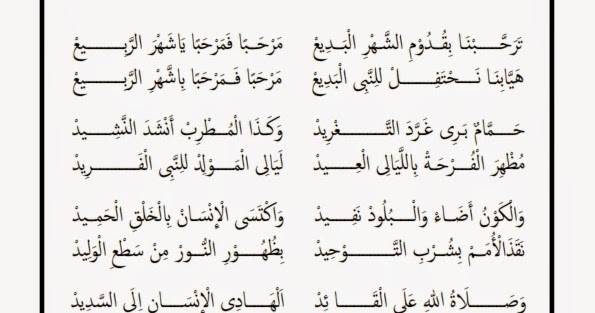 تَرَحَّبْنَا بِقُدُوْمِ الشَّهْرِ الْبَدِيعْ مَرْحَبًا فَمَرْحَبًا يَاشَهْرَ الرَّبِيعْ
هَيَّابِنَا نَحْتَفِلْ لِلنَّبِى الْبَدِيعْ مَرْحَبًا فَمَرْحَبًا بِاشَّهْرِ الرَّبِيعْ
حَمَّامٌ بَرِى غَرَّدَ التَّغْرِيدْ وَكَذَا الْمُطْرِبْ أَنْشَدَ النَّشِيدْ
مُظْهِرَ الْفُرْحَةْ بِاللَّيَالِى الْعِيدْ لَيَالِى الْمَوْلِدْ لِلنَّبِى الْفَرِيدْ
وَالْكَوْنُ أَضَاءَ وَالْبُلُودْ نَفِيدْ وَاكْتَسَى الْإِنْسَانْ بِالْخَلْقِ الْحَمِيدْ
نَقَذَالْأُمَمْ بِشُرْبِ التَّوْحِيدْ بِظُهُوْرِ النُّورْ مِنْ سَطْعِ الْوَلِيدْ
وَصَلَاةُ اللهِ عَلَى الْقَائِدْ اَلْهَادِى الْإِنْسَانِ إِلَى السَّدِيدْ